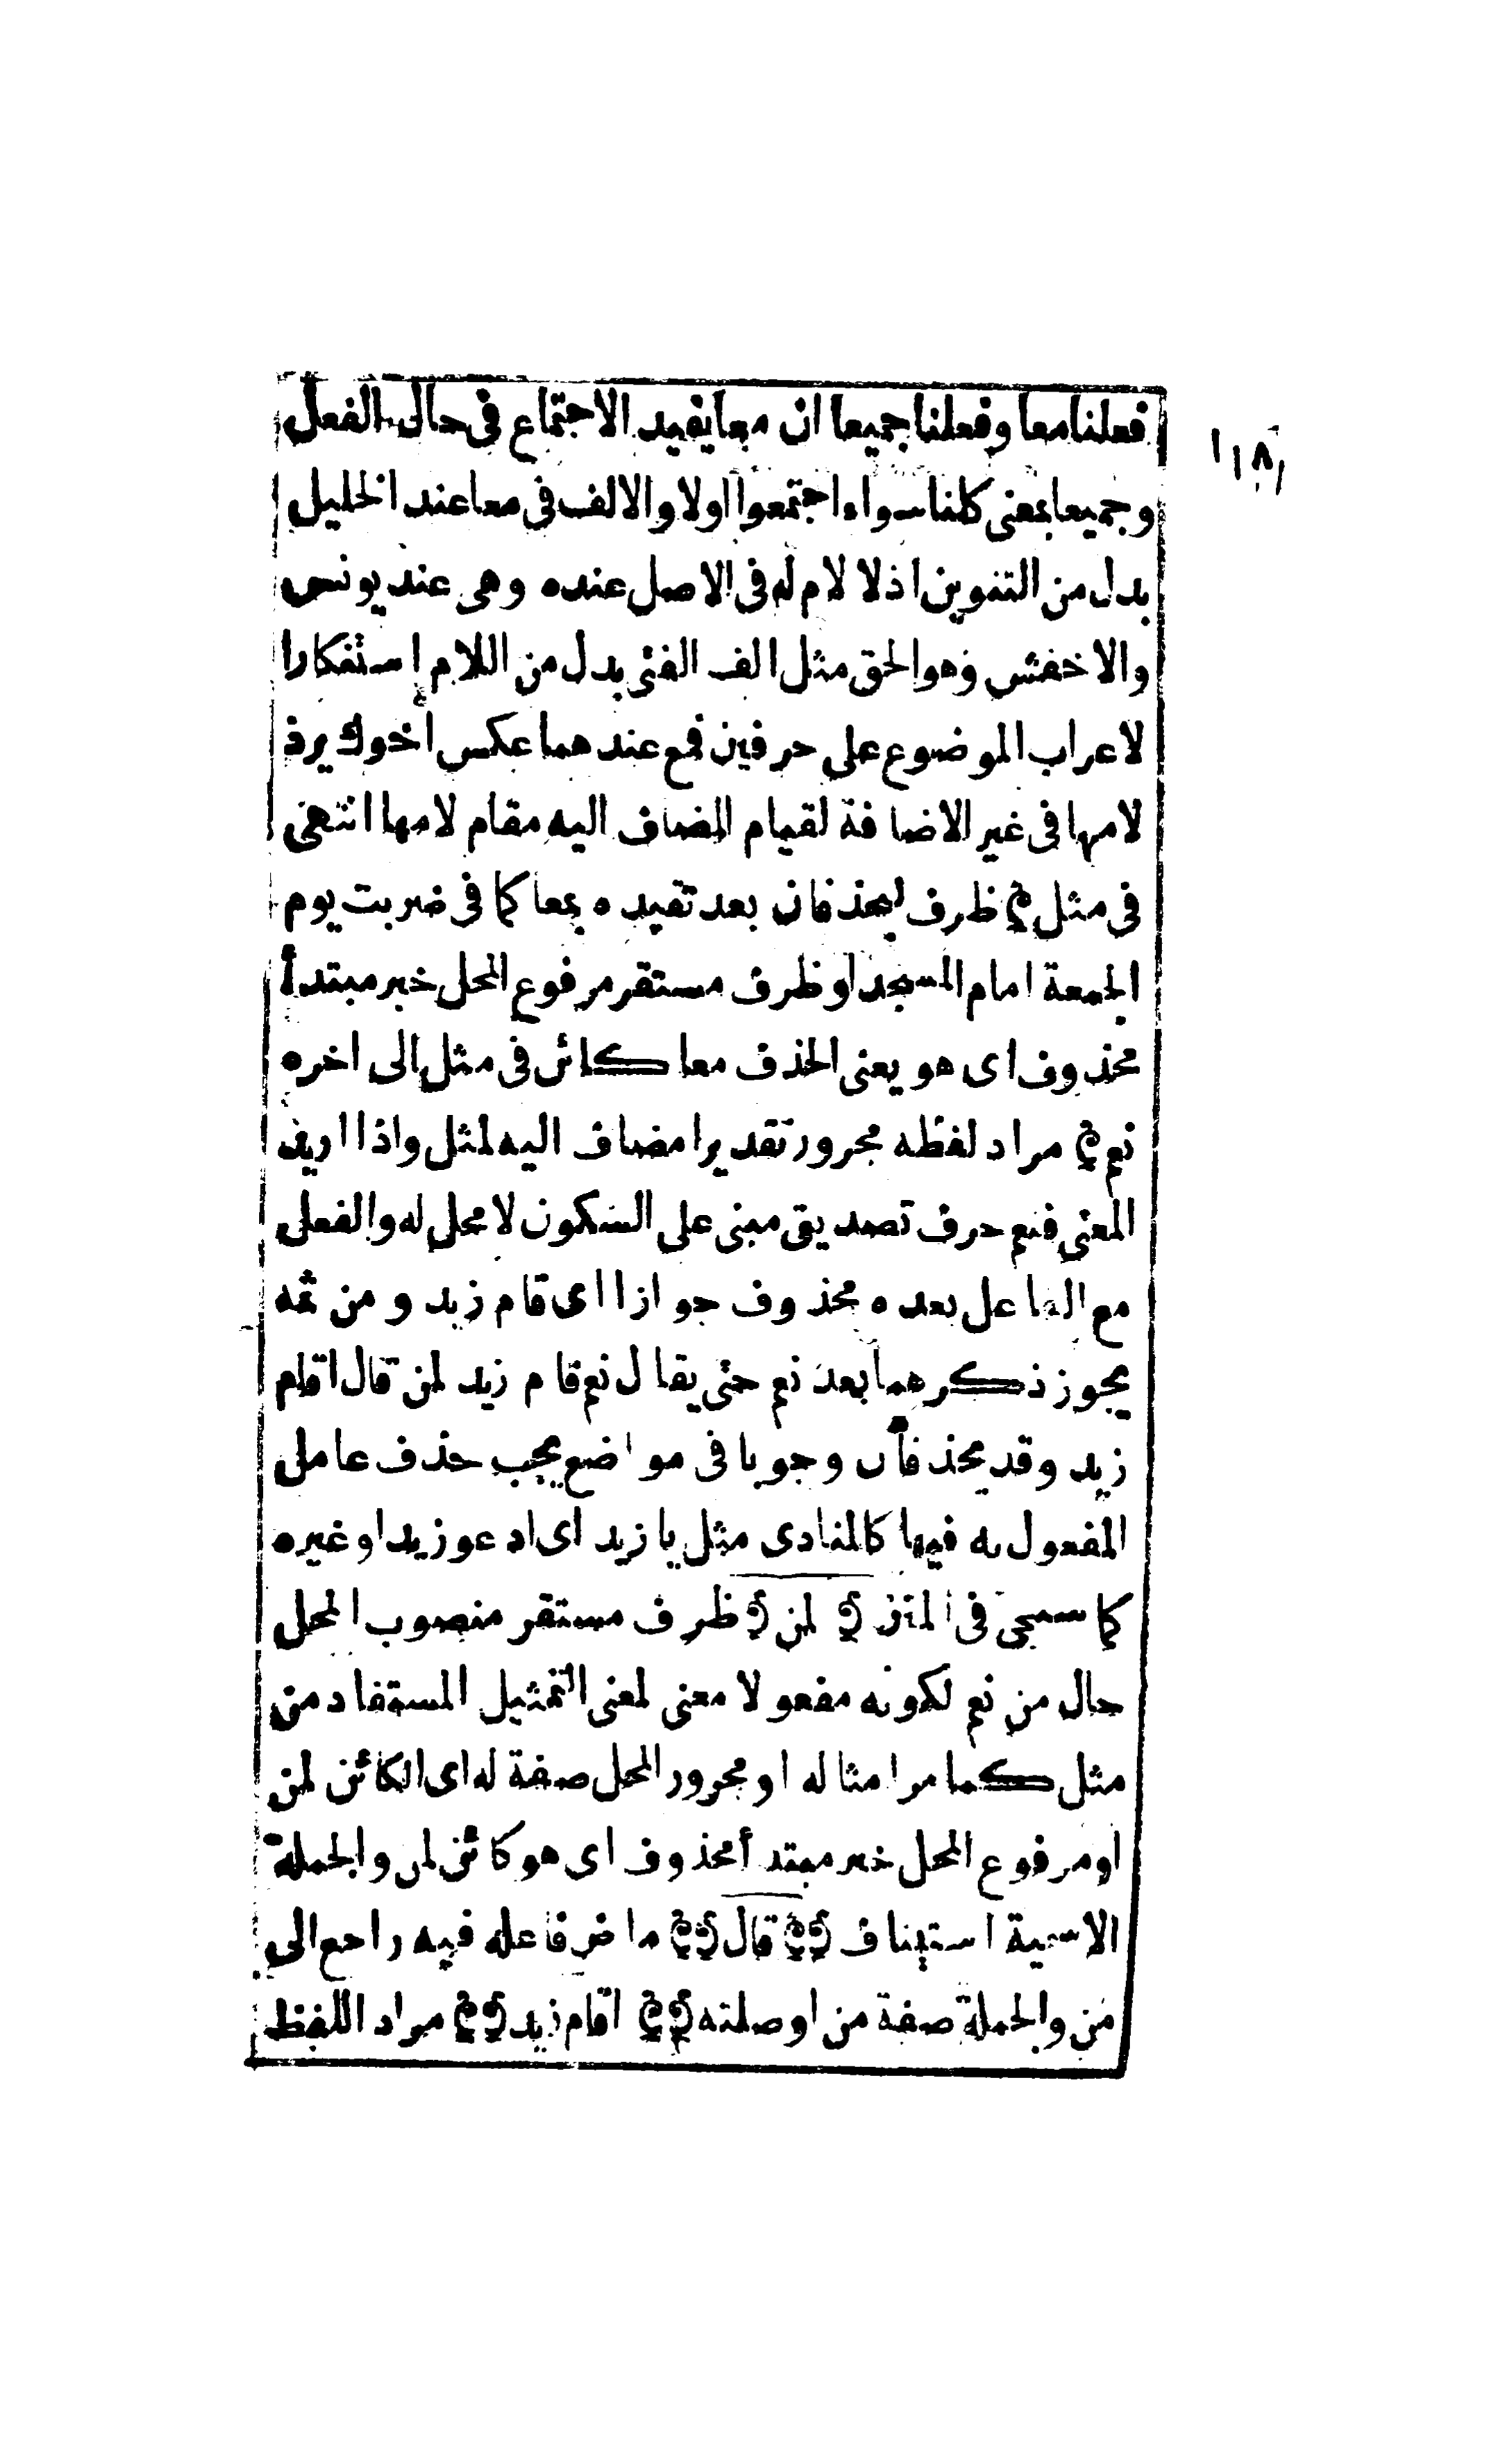 ١١٨
فعلنا معا وفعلنا جميعا ان معا يفيد الاجتماع فى حال الفعل
وجميعا بمعنى كلنا سواء اجتمعوا اولا والالف فى معا عند الخليل
بدل من التنوين اذ لا لام له فى الاصل عنده وهى عند يونس
والاخفش وهو الحق مثل الف الفتى بدل من اللام استنكارا
لاعراب الموضوع على حرفين فمع عند هما عكس اخوك يرد
لامها فى غير الاضافة لقيام المضاف اليه مقام لامها انتهى
فى مثل ظرف ليحذفان بعد تقيده بمعا كما فى ضربت يوم
الجمعة امام المسجد او ظرف مستقر مرفوع المحل خبر مبتدأ
محذوف اى هو يعنى الحذف معا كائن فى مثل الى اخره
نعم مراد لفظه مجرور تقديرا مضاف اليه لمثل واذا اريد
المعنى فنعم حرف تصديق مبنى على السكون لا محل له والفعل
مع الفاعل بعده محذوف جوازا اى قام زيد ومن ثمه
يجوز ذكرهما بعد نعم حتى يقال نعم قام زيد لمن قال اقام
زيد وقد يحذفان وجوبا فى مواضع يجب حذف عامل
المفعول به فيها كالمنادى مثل يا زيد اى ادعو زيدا وغيره
كما سيجئ فى المتن لمن ظرف مستقر منصوب المحل
حال من نعم لكونه مفعولا معنى لمعنى التمثيل المستفاد من
مثل كما مر امثاله او مجرور المحل صفة له اى الكائن لمن
او مرفوع المحل خبر مبتدأ محذوف اى هو كائن لمن والجملة
الاسمية استيناف قال ماض فاعله فيه راجع الى
من والجملة صفة من او صلته اقام زيد مراد اللفظ